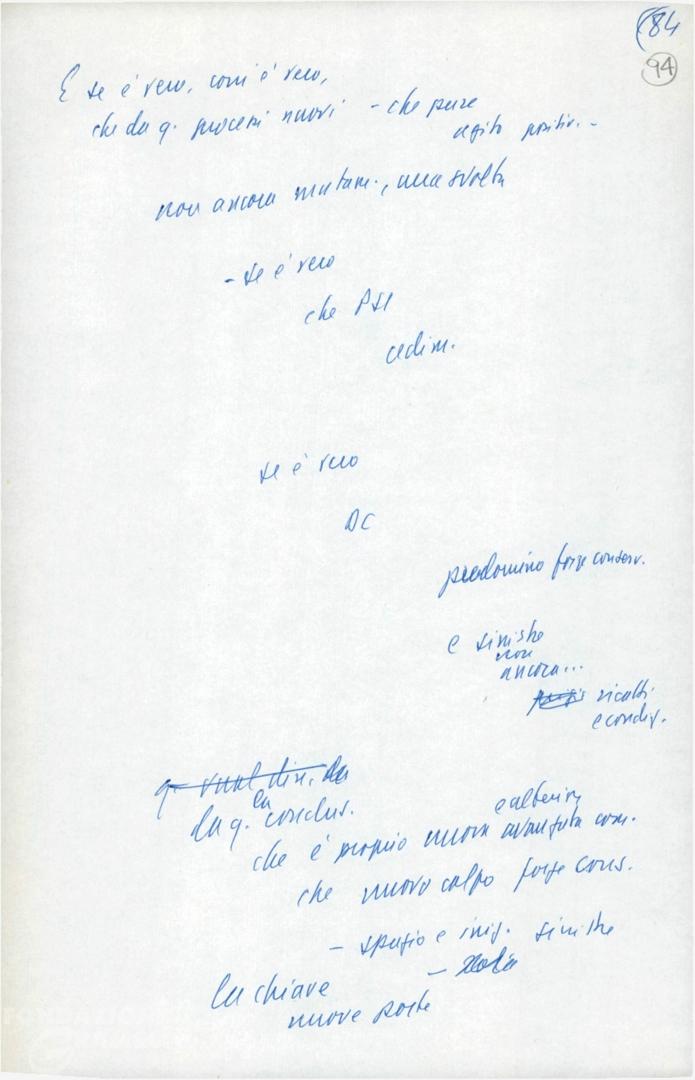 (84
94
E se è vero, com'è vero,
che da q. processi nuovi – che pure
agito positiv. –
non ancora mutam., una svolta
– se è vero
che PSI
cedim.
se è vero
DC
predominio forze conserv.
e sinistre
non
ancora...
ricatti
e condiz.
q. vuol dire, da
da q. la conclus.
e altern.
che è proprio nuova avanzata com.
che nuovo colpo forze cons.
– spazio e iniz. sinistre
–
la chiave
nuove porte